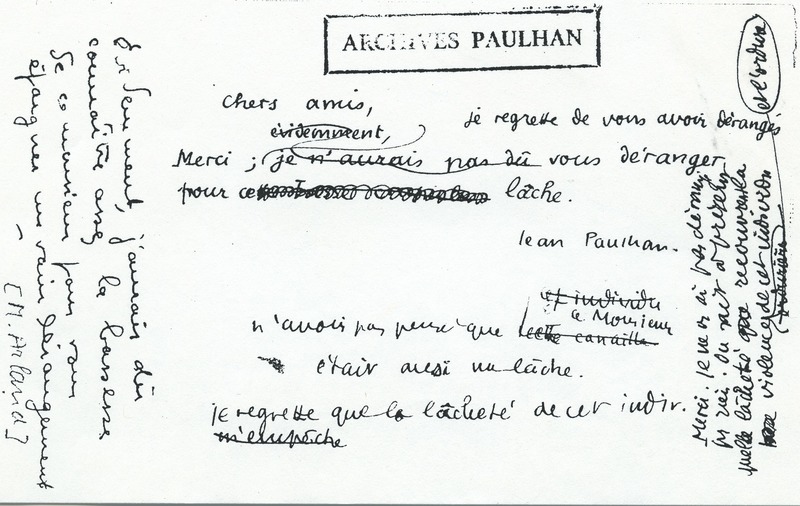 ARCHIVES PAULHAN
Chers amis,
évidemment,
je regrette de vous avoir dérangés
Merci ; je n'aurais pas dû vous déranger
pour ce lâche.
Jean Paulhan.
et individu
ce Monsieur
n'avais pas pensé que cette canaille
était aussi un lâche.
je regrette que la lâcheté de cet indiv.
m'empêche
Évidemment, j'aurais dû
connaître assez la bassesse
de ce monsieur pour vous
épargner un vain dérangement
[M. Arland]
Merci. Je ne vs ai pas dérangés
pr rien. On sait à présent
quelle lâcheté recouvrait la
violence de cet individu
et l'ordure